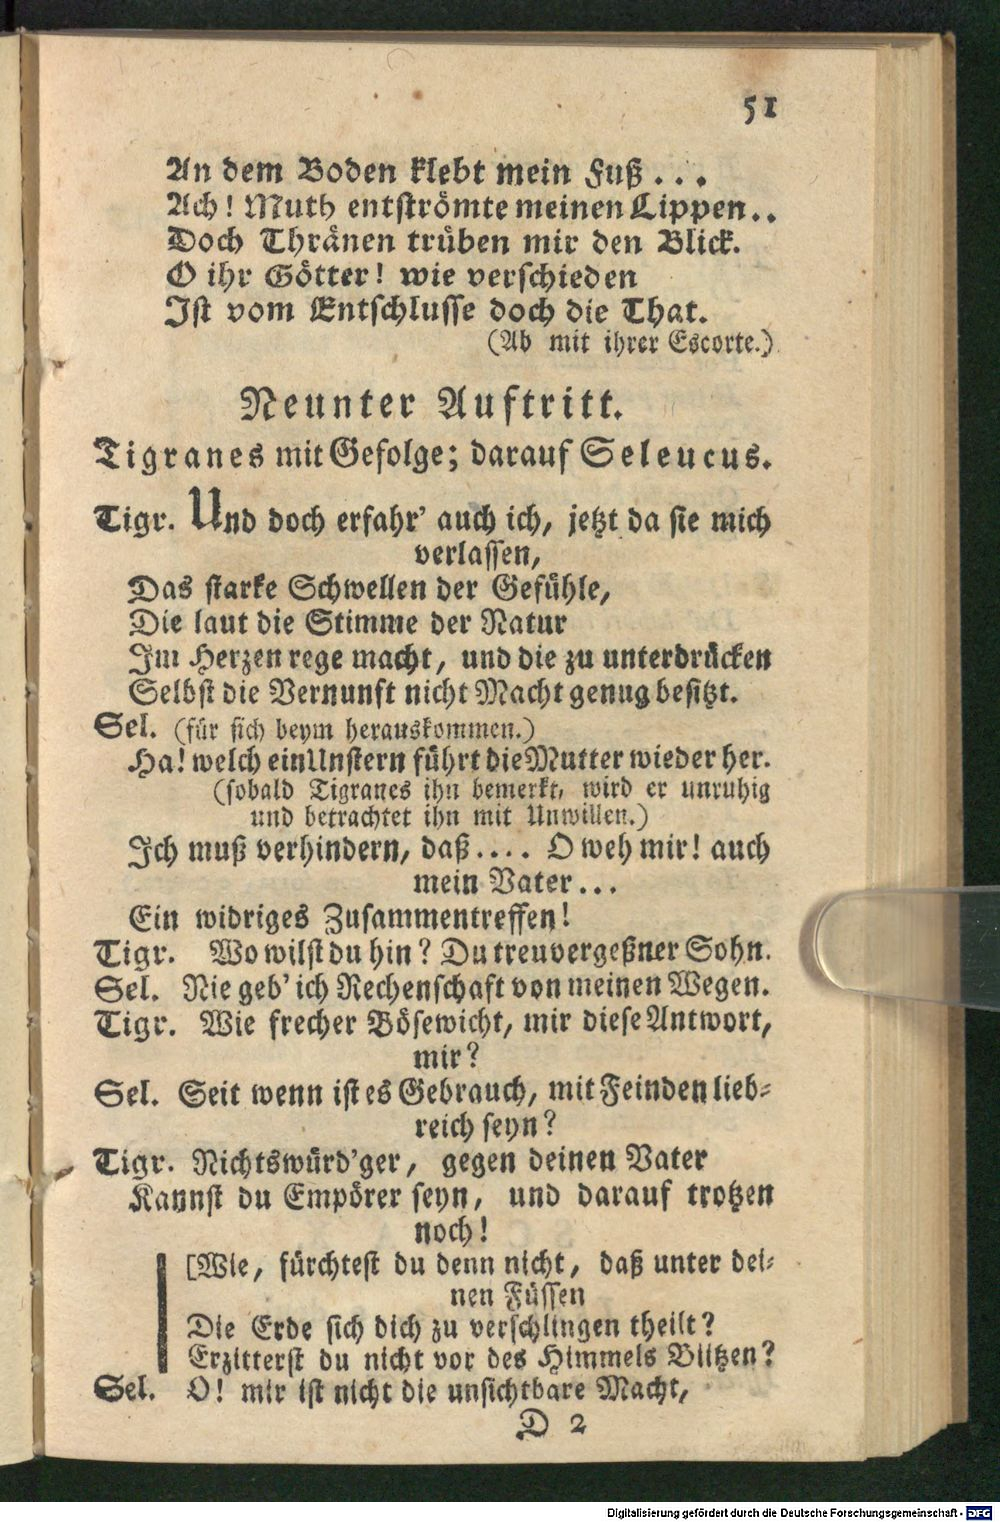 51
An dem Boden klebt mein Fuß...
Ach! Muth entströmte meinen Lippen..
Doch Thränen trüben mir den Blick.
O ihr Götter! wie verschieden
Ist vom Entschlusse doch die That.
(Ab mit ihrer Escorte.)
Neunter Auftritt.
Tigranes mit Gefolge; darauf Seleucus.
Tigr. Und doch erfahr' auch ich, jetzt da sie mich
verlassen,
Das starke Schwellen der Gefühle,
Die laut die Stimme der Natur
Im Herzen rege macht, und die zu unterdrücken
Selbst die Vernunft nicht Macht genug besitzt.
Sel. (für sich beym herauskommen.)
Ha! welch ein Unstern führt die Mutter wieder her.
(sobald Tigranes ihn bemerkt, wird er unruhig
und betrachtet ihn mit Unwillen.)
Ich muß verhindern, daß.... O weh mir! auch
mein Vater...
Ein widriges Zusammentreffen!
Tigr. Wo wilst du hin? Du treuvergeßner Sohn.
Sel. Nie geb' ich Rechenschaft von meinen Wegen.
Tigr. Wie frecher Bösewicht, mir diese Antwort,
mir?
Sel. Seit wenn ist es Gebrauch, mit Feinden lieb-
reich seyn?
Tigr. Nichtswürd'ger, gegen deinen Vater
Kannst du Empörer seyn, und darauf trotzen
noch!
[Wie, fürchtest du denn nicht, daß unter dei-
nen Füssen
Die Erde sich dich zu verschlingen theilt?
Erzitterst du nicht vor des Himmels Blitzen?
Sel. O! mir ist nicht die unsichtbare Macht,
D 2
Digitalisierung gefördert durch die Deutsche Forschungsgemeinschaft - DFG